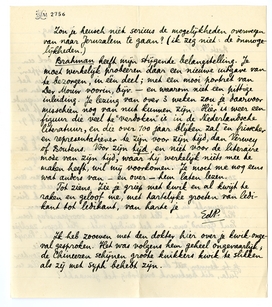 2756
Zou je heusch niet serieus de mogelijkheden overwegen
van naar Jeruzalem te gaan? (ik zeg niet: de onmoge-
lijkheden!)
Brahman heeft mijn stijgende belangstelling. Je
moet werkelijk probeeren daar een nieuwe uitgave van
te bezorgen, in één deel; met een mooi portret van
Dèr Mouw voorin, bijv. – en waarom niet een pittige
inleiding. Je lezing van over 3 weken zou je daarvoor
misschien nog van nut kunnen zijn. Hier is weer een
figuur die veel te "verdoken" is in de Nederlandsche
literatuur, en die over 100 jaar blijken zal en frissche,
en representatiever voor zijn tijd, dan Verwey
of Boutens. Voor zijn tijd, en niet voor de literaire
mode van zijn tijd, waar hij werkelijk niets mee te
maken heeft, wil mij voorkomen. Je moet me nog eens
wat autres van – en over – hem laten lezen.
Tot ziens. Zie je griep met kwik en al kwijt te
raken en geloof me, met hartelijke groeten van ledi-
kant tot ledikant, van harte je
EdP.
Ik heb zooeven met den dokter hier over je kwik-onge-
val gesproken. Het was volgens hem geheel ongevaarlijk,
de Chineezen schijnen groote knikkers kwik te slikken
als zij met syph behebt zijn.